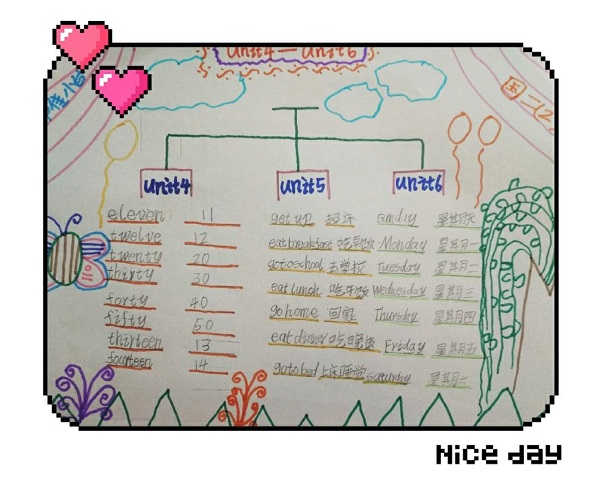 unit4 — unit6
二(2
unit4 unit5 unit6
eleven 11 get up 起床 Sunday 星期天
twelve 12 eat breakfast 吃早饭 Monday 星期一
twenty 20 go to school 去学校 Tuesday 星期二
thirty 30 eat lunch 吃午饭 Wednesday 星期三
forty 40 go home 回家 Thursday 星期四
fifty 50 eat dinner 吃晚饭 Friday 星期五
thirteen 13
fourteen 14 go to bed 上床睡觉 Saturday 星期六
Nice day